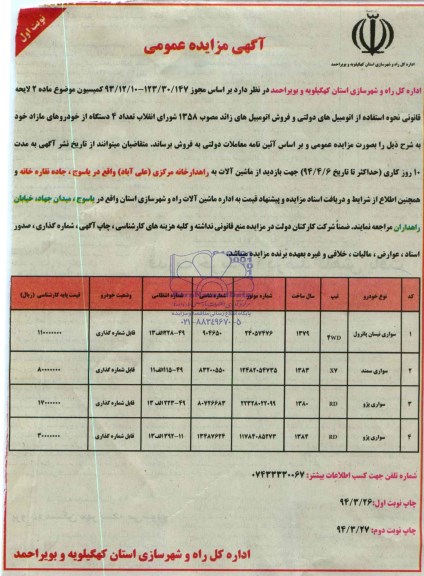 نوبت اول
اداره کل راه و شهرسازی استان کهگیلویه و بویراحمد
آگهی مزایده عمومی
اداره کل راه و شهرسازی استان کهگیلویه و بویراحمد در نظر دارد بر اساس مجوز ۱۲۳/۳۰/۱۴۷-۹۳/۱۲/۱۰ کمیسیون موضوع ماده ۲ لایحه
قانونی نحوه استفاده از اتومبیل های دولتی و فروش اتومبیل های زائد مصوب ۱۳۵۸ شورای انقلاب تعداد ۴ دستگاه از خودروهای مازاد خود
به شرح ذیل را بصورت مزایده عمومی و بر اساس آئین نامه معاملات دولتی به فروش برساند. متقاضیان میتوانند از تاریخ نشر آگهی به مدت
۱۰ روز کاری (حداکثر تا تاریخ ۹۴/۴/۶) جهت بازدید از ماشین آلات به راهدارخانه مرکزی (علی آباد) واقع در یاسوج ، جاده نقاره خانه و
همچنین اطلاع از شرایط و دریافت اسناد مزایده و پیشنهاد قیمت به اداره ماشین آلات راه و شهرسازی استان واقع در یاسوج ، میدان جهاد، خیابان
راهداران مراجعه نمایند. ضمناً شرکت کارکنان دولت در مزایده منع قانونی نداشته و کلیه هزینه های کارشناسی ، چاپ آگهی ، شماره گذاری ، صدور
اسناد ، عوارض ، مالیات ، خلافی و غیره بعهده برنده مزایده میباشد.
کد نوع خودرو تیپ سال ساخت شماره موتور شماره شاسی شماره انتظامی وضعیت خودرو قیمت پایه کارشناسی (ریال)
۱ سواری نیسان پاترول 4WD ۱۳۷۹ ۲۴۰۵۷۴۷۶ ۹۰۴۶۵۰ ۴۹-۳۲۸الف۱۳ قابل شماره گذاری ۱۱۰۰۰۰۰۰۰
۲ سواری سمند X7 ۱۳۸۳ ۱۲۴۸۲۰۵۴۷۳۵ ۸۳۲۰۰۵۵۰ ۴۹-۹۱۵الف۱۱ قابل شماره گذاری ۸۰۰۰۰۰۰۰
۳ سواری پژو RD ۱۳۸۰ ۲۲۳۲۸۰۲۲۰۹۹ ۸۰۷۲۶۶۸۳ ۴۹-۲۲۳الف ۱۳ قابل شماره گذاری ۱۷۰۰۰۰۰۰
۴ سواری پژو RD ۱۳۸۴ ۱۱۷۸۲۰۸۵۴۷۳ ۱۳۴۸۷۶۲۴ ۱۱-۳۹۲الف۱۳ قابل شماره گذاری ۳۰۰۰۰۰۰۰
۰۲۱-۸۸۳۴۹۶۷۰-۵
شماره تلفن جهت کسب اطلاعات بیشتر: ۰۷۴۳۳۳۳۰۰۶۷
چاپ نوبت اول: ۹۴/۳/۲۶
چاپ نوبت دوم: ۹۴/۳/۲۷
اداره کل راه و شهرسازی استان کهگیلویه و بویراحمد